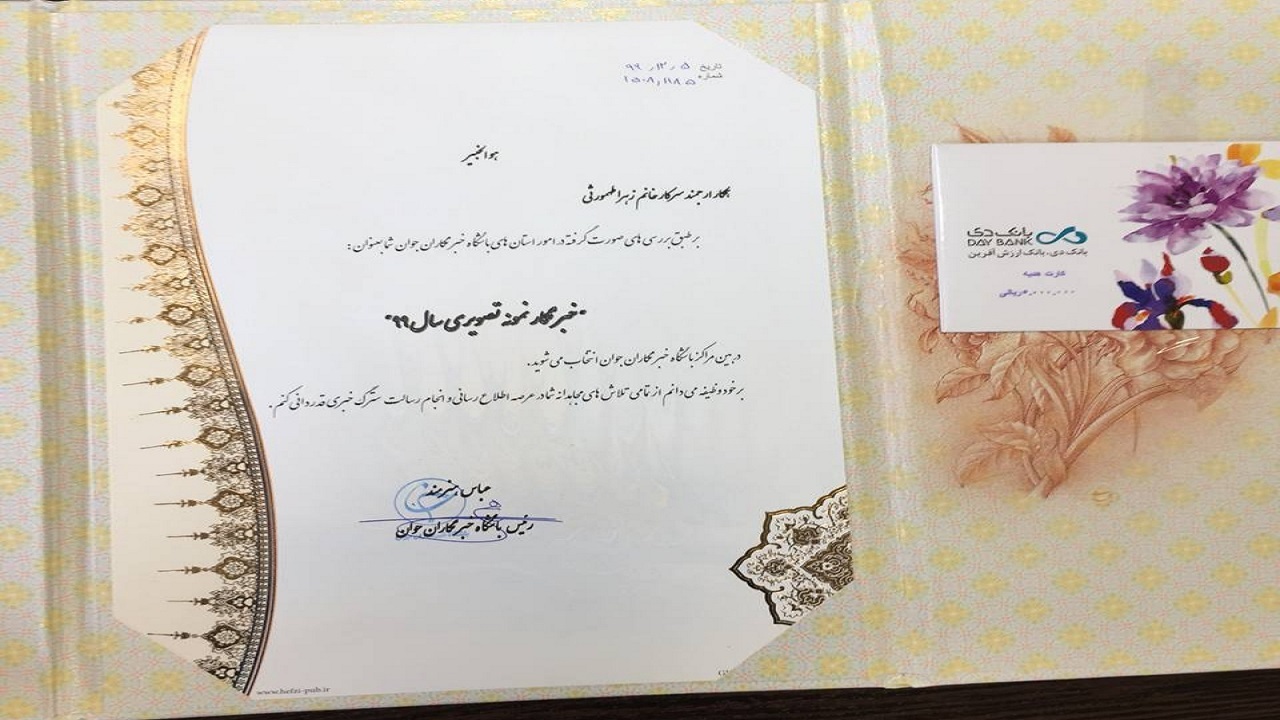 تاریخ ۹۹/۱۲/۰۵
شماره ۱۵۰۸/۱۱۸۵
هو الخبیر
همکار ارجمند سرکار خانم زهرا طهمورثی
بر طبق بررسی های صورت گرفته در امور استان های باشگاه خبرنگاران جوان شما بعنوان :
"خبرنگار نمونه تصویری سال ۹۹"
در بین مراکز باشگاه خبرنگاران جوان انتخاب می شوید.
بر خود وظیفه می دانم از تمامی تلاش های مجاهدانه شما در عرصه اطلاع رسانی و انجام رسالت سترگ خبری قدردانی کنم.
عباس هنرمند
رئیس باشگاه خبرنگاران جوان
www.hefzi-pub.ir
بانک دی
DAY BANK
بانک دی، بانک ارزش آفرین
کارت هدیه